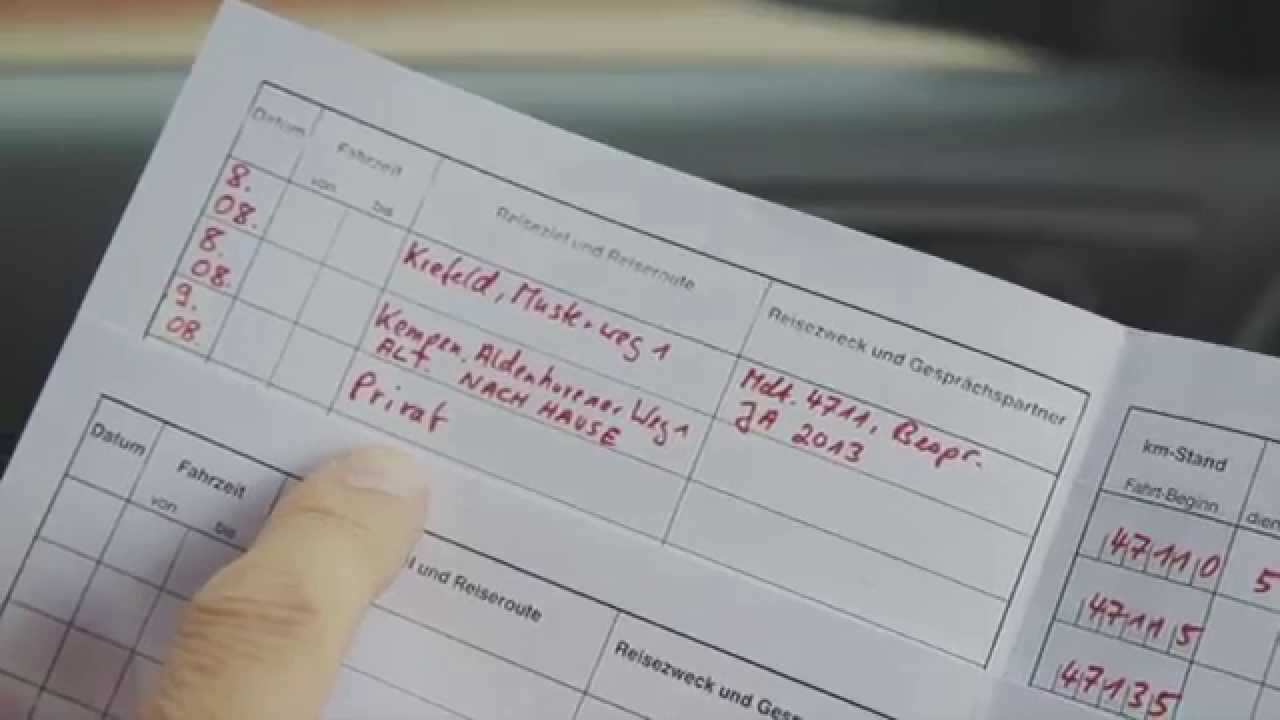 Datum
Fahrzeit
von bis
Reiseziel und Reiseroute
Reisezweck und Gesprächspartner
8.
08.
Krefeld, Musterweg 1
Mdt. 4711, Bespr.
JA 2013
8.
08.
Kempen, Aldenhovener Weg 1
ALF. NACH HAUSE
9.
08.
Privat
km-Stand
Fahrt-Beginn
dien
47110
5
47115
47135
Datum
Fahrzeit
von bis
l und Reiseroute
Reisezweck und Gesp